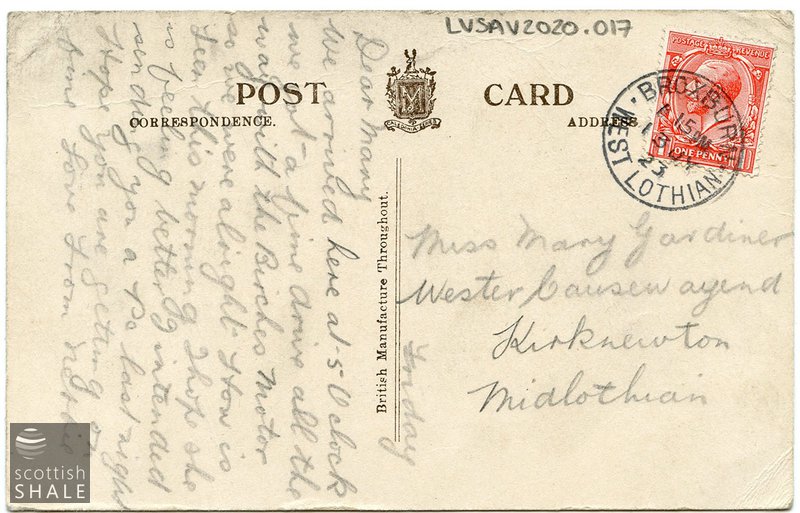 LVSAV2020.017
POST CARD
CORRESPONDENCE.
ADDRESS
CALEDONIA SERIES
POSTAGE REVENUE
ONE PENNY
BROXBURN
1 15 PM
23
WEST LOTHIAN
British Manufacture Throughout.
Friday
Dear Mary
We arrived here at 5 O'clock
we had a fine drive all the
way with the Birches Motor
so we were alright How is
Teen this morning I hope she
is feeling better I intended
sending you a Pc last night
Hope you are getting on
fine Love from
Miss Mary Gardiner
Wester Causewayend
Kirknewton
Midlothian
scottish
SHALE